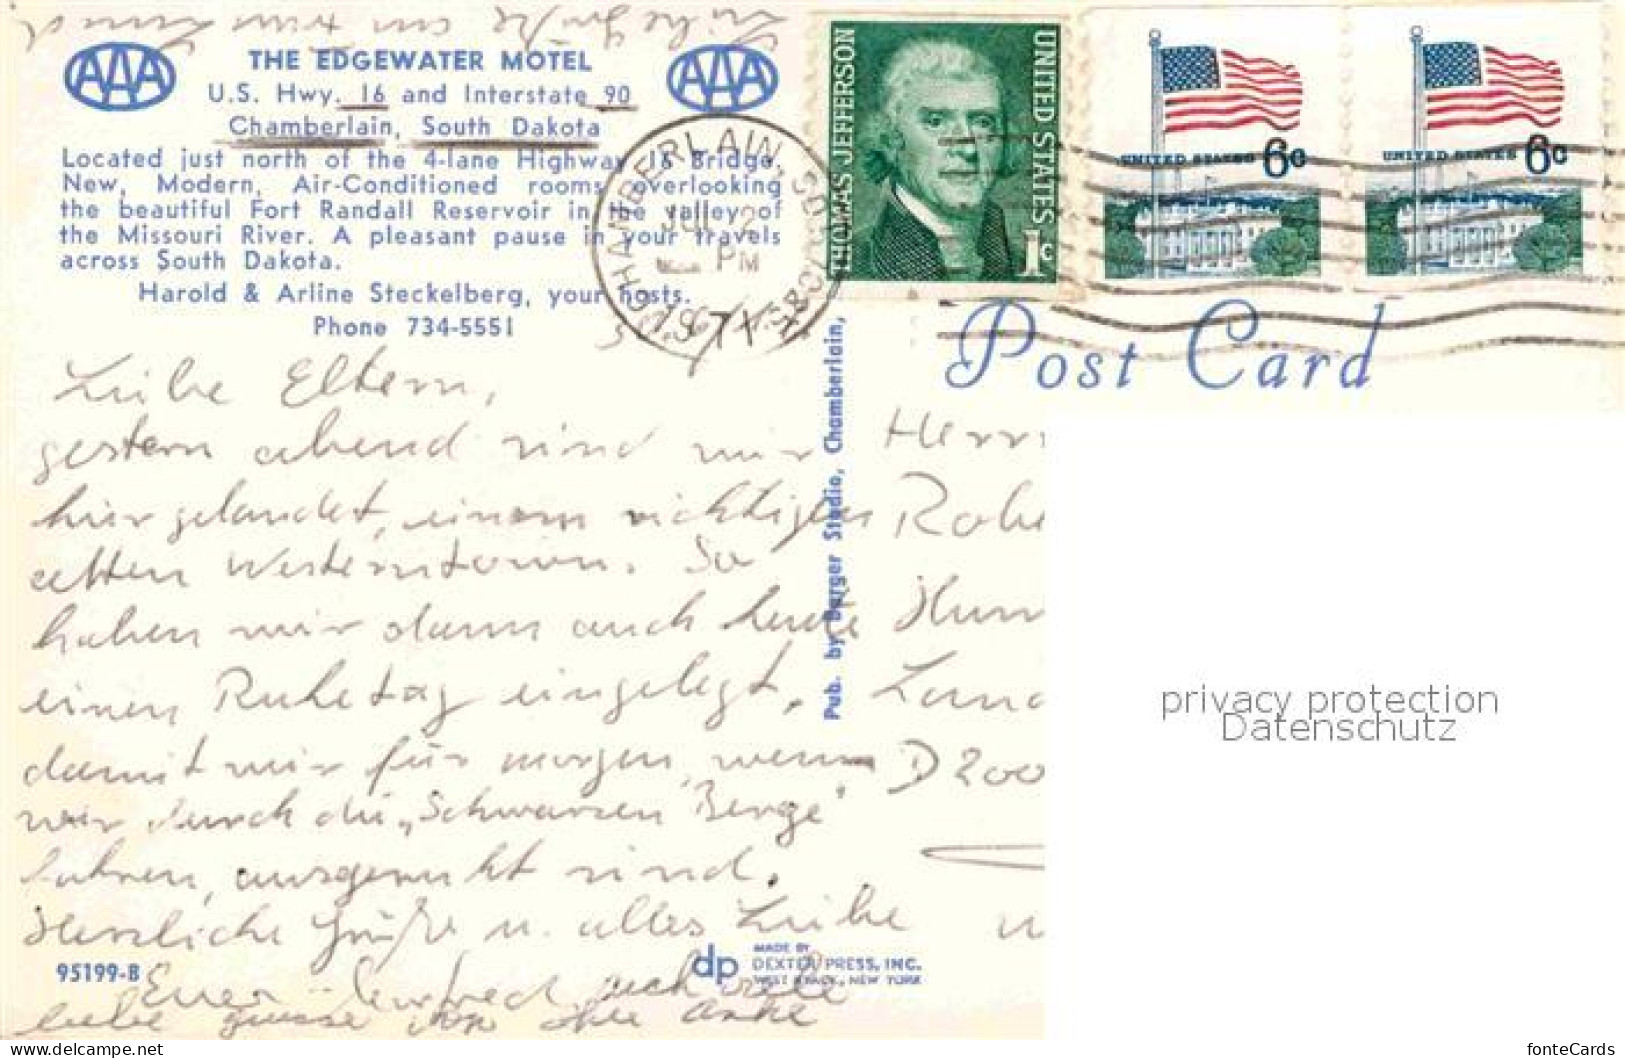 THE EDGEWATER MOTEL
U.S. Hwy. 16 and Interstate 90
Chamberlain, South Dakota
Located just north of the 4-lane Highway 16 Bridge.
New, Modern, Air-Conditioned rooms overlooking
the beautiful Fort Randall Reservoir in the valley of
the Missouri River. A pleasant pause in your travels
across South Dakota.
Harold & Arline Steckelberg, your hosts.
Phone 734-5551
AAA
AAA
CHAMBERLAIN, SO. DAK.
PM
1971
THOMAS JEFFERSON
UNITED STATES
1c
UNITED STATES 6c
UNITED STATES 6c
Post Card
Liebe Eltern,
gestern abend sind wir
hier gelandet, einem richtigen
alten Westerntown. So
haben wir dann auch heute
einen Ruhetag eingelegt,
damit wir für morgen, wenn
wir durch die "Schwarzen Berge"
fahren, ausgeruht sind.
Herzliche Grüße u. alles Liebe
Euer Manfred, auch viele
liebe
Pub. by Burger Studio, Chamberlain,
Herr
Robe
Ham
Land
D 200
95199-B
dp
MADE BY
DEXTER PRESS, INC.
WEST NYACK, NEW YORK
privacy protection
Datenschutz
www.delcampe.net
fonteCards